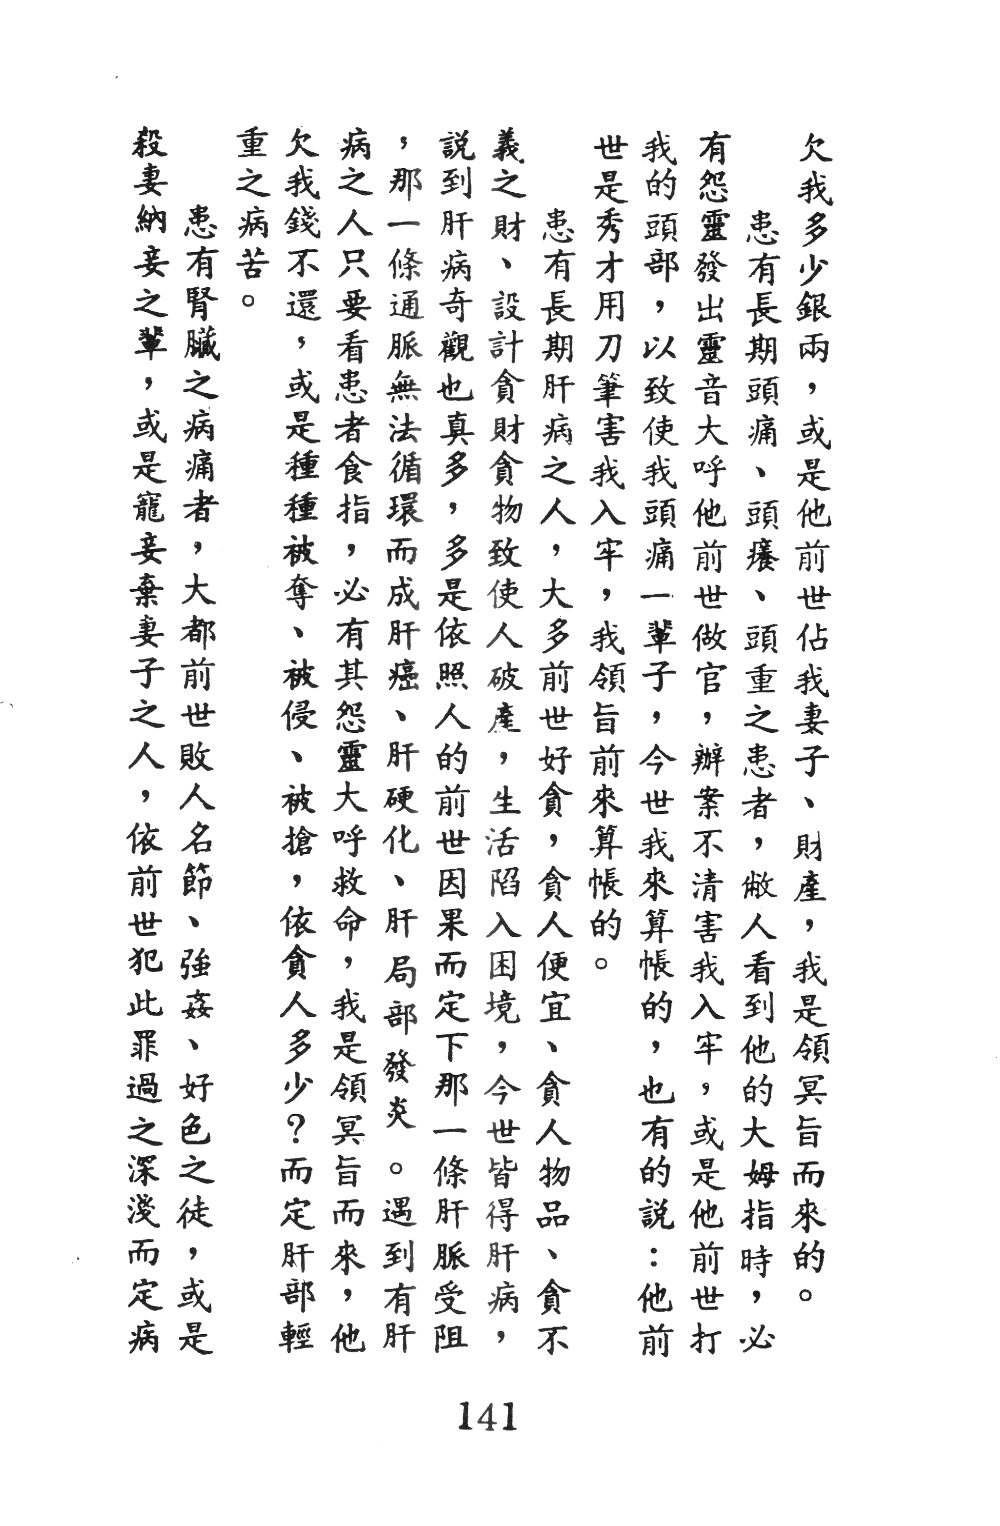 欠我多少銀兩，或是他前世佔我妻子、財產，我是領冥旨而來的。
患有長期頭痛、頭癢、頭重之患者，敝人看到他的大姆指時，必
有怨靈發出靈音大呼他前世做官，辦案不清害我入牢，或是他前世打
我的頭部，以致使我頭痛一輩子，今世我來算帳的，也有的說：他前
世是秀才用刀筆害我入牢，我領旨前來算帳的。
患有長期肝病之人，大多前世好貪，貪人便宜、貪人物品、貪不
義之財、設計貪財貪物致使人破產，生活陷入困境，今世皆得肝病，
說到肝病奇觀也真多，多是依照人的前世因果而定下那一條肝脈受阻
，那一條通脈無法循環而成肝癌、肝硬化、肝局部發炎。遇到有肝
病之人只要看患者食指，必有其怨靈大呼救命，我是領冥旨而來，他
欠我錢不還，或是種種被奪、被侵、被搶，依貪人多少？而定肝部輕
重之病苦。
患有腎臟之病痛者，大都前世敗人名節、強姦、好色之徒，或是
殺妻納妾之輩，或是寵妾棄妻子之人，依前世犯此罪過之深淺而定病
141